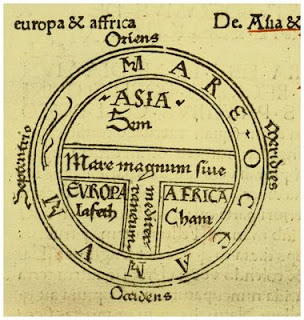 europa & affrica
De. Asia &
Oriens
MARE·OCCEANVM
Septentrio
Meridies
ASIA
Sem
Mare magnum siue
mediterraneum
EVROPA
Iafeth
AFRICA
Cham
Occidens